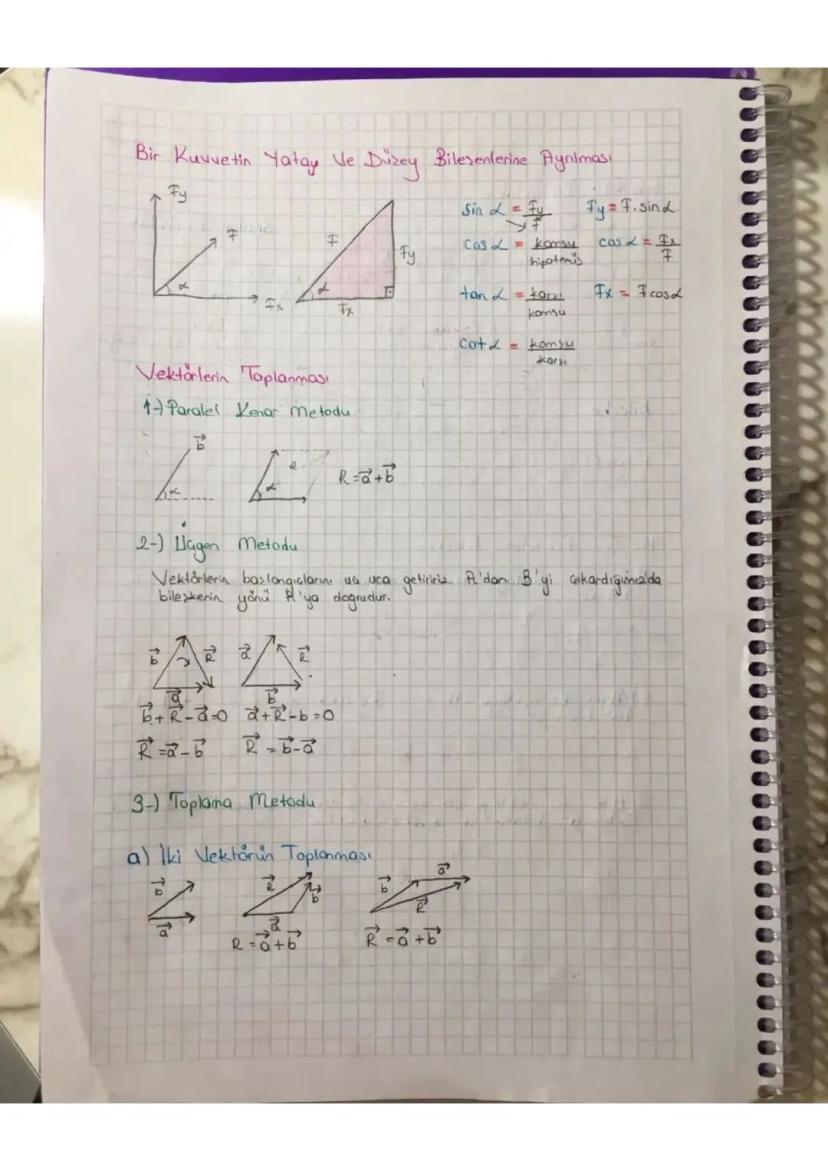 Bir Kuvvetin Yatay Ve Düzey Bileşenlerine Ayrılması
Fy
F
α
Fx
F
Fy
α
Fx
sin α = Fy / F
Fy = F. sinα
cos α = komşu / hipotenüs
cos α = Fx / F
tan α = karşı / komşu
Fx = F cosα
cot α = komşu / karşı
Vektörlerin Toplanması
1-) Paralel Kenar Metodu
b⃗
α
R
α
R = a⃗ + b⃗
2-) Üçgen Metodu
Vektörlerin başlangıçlarını uç uca getiririz. A'dan B'yi çıkardığımızda
bileşkenin yönü A'ya doğrudur.
b⃗ R⃗ a⃗
a⃗ R⃗ b⃗
b⃗ + R⃗ - a⃗ = 0 a⃗ + R⃗ - b = 0
R⃗ = a⃗ - b⃗ R⃗ = b⃗ - a⃗
3-) Toplama Metodu
a) İki Vektörün Toplanması
b⃗ a⃗
R⃗ b⃗ a⃗
b⃗ a⃗ R⃗
R = a⃗ + b⃗ R⃗ = a⃗ + b⃗